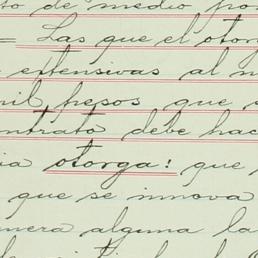 to de medio
= Las que el otorg
extensivas al
mil pesos que
ontrato debe hac
ia otorga: que
que se innova
nera alguna la